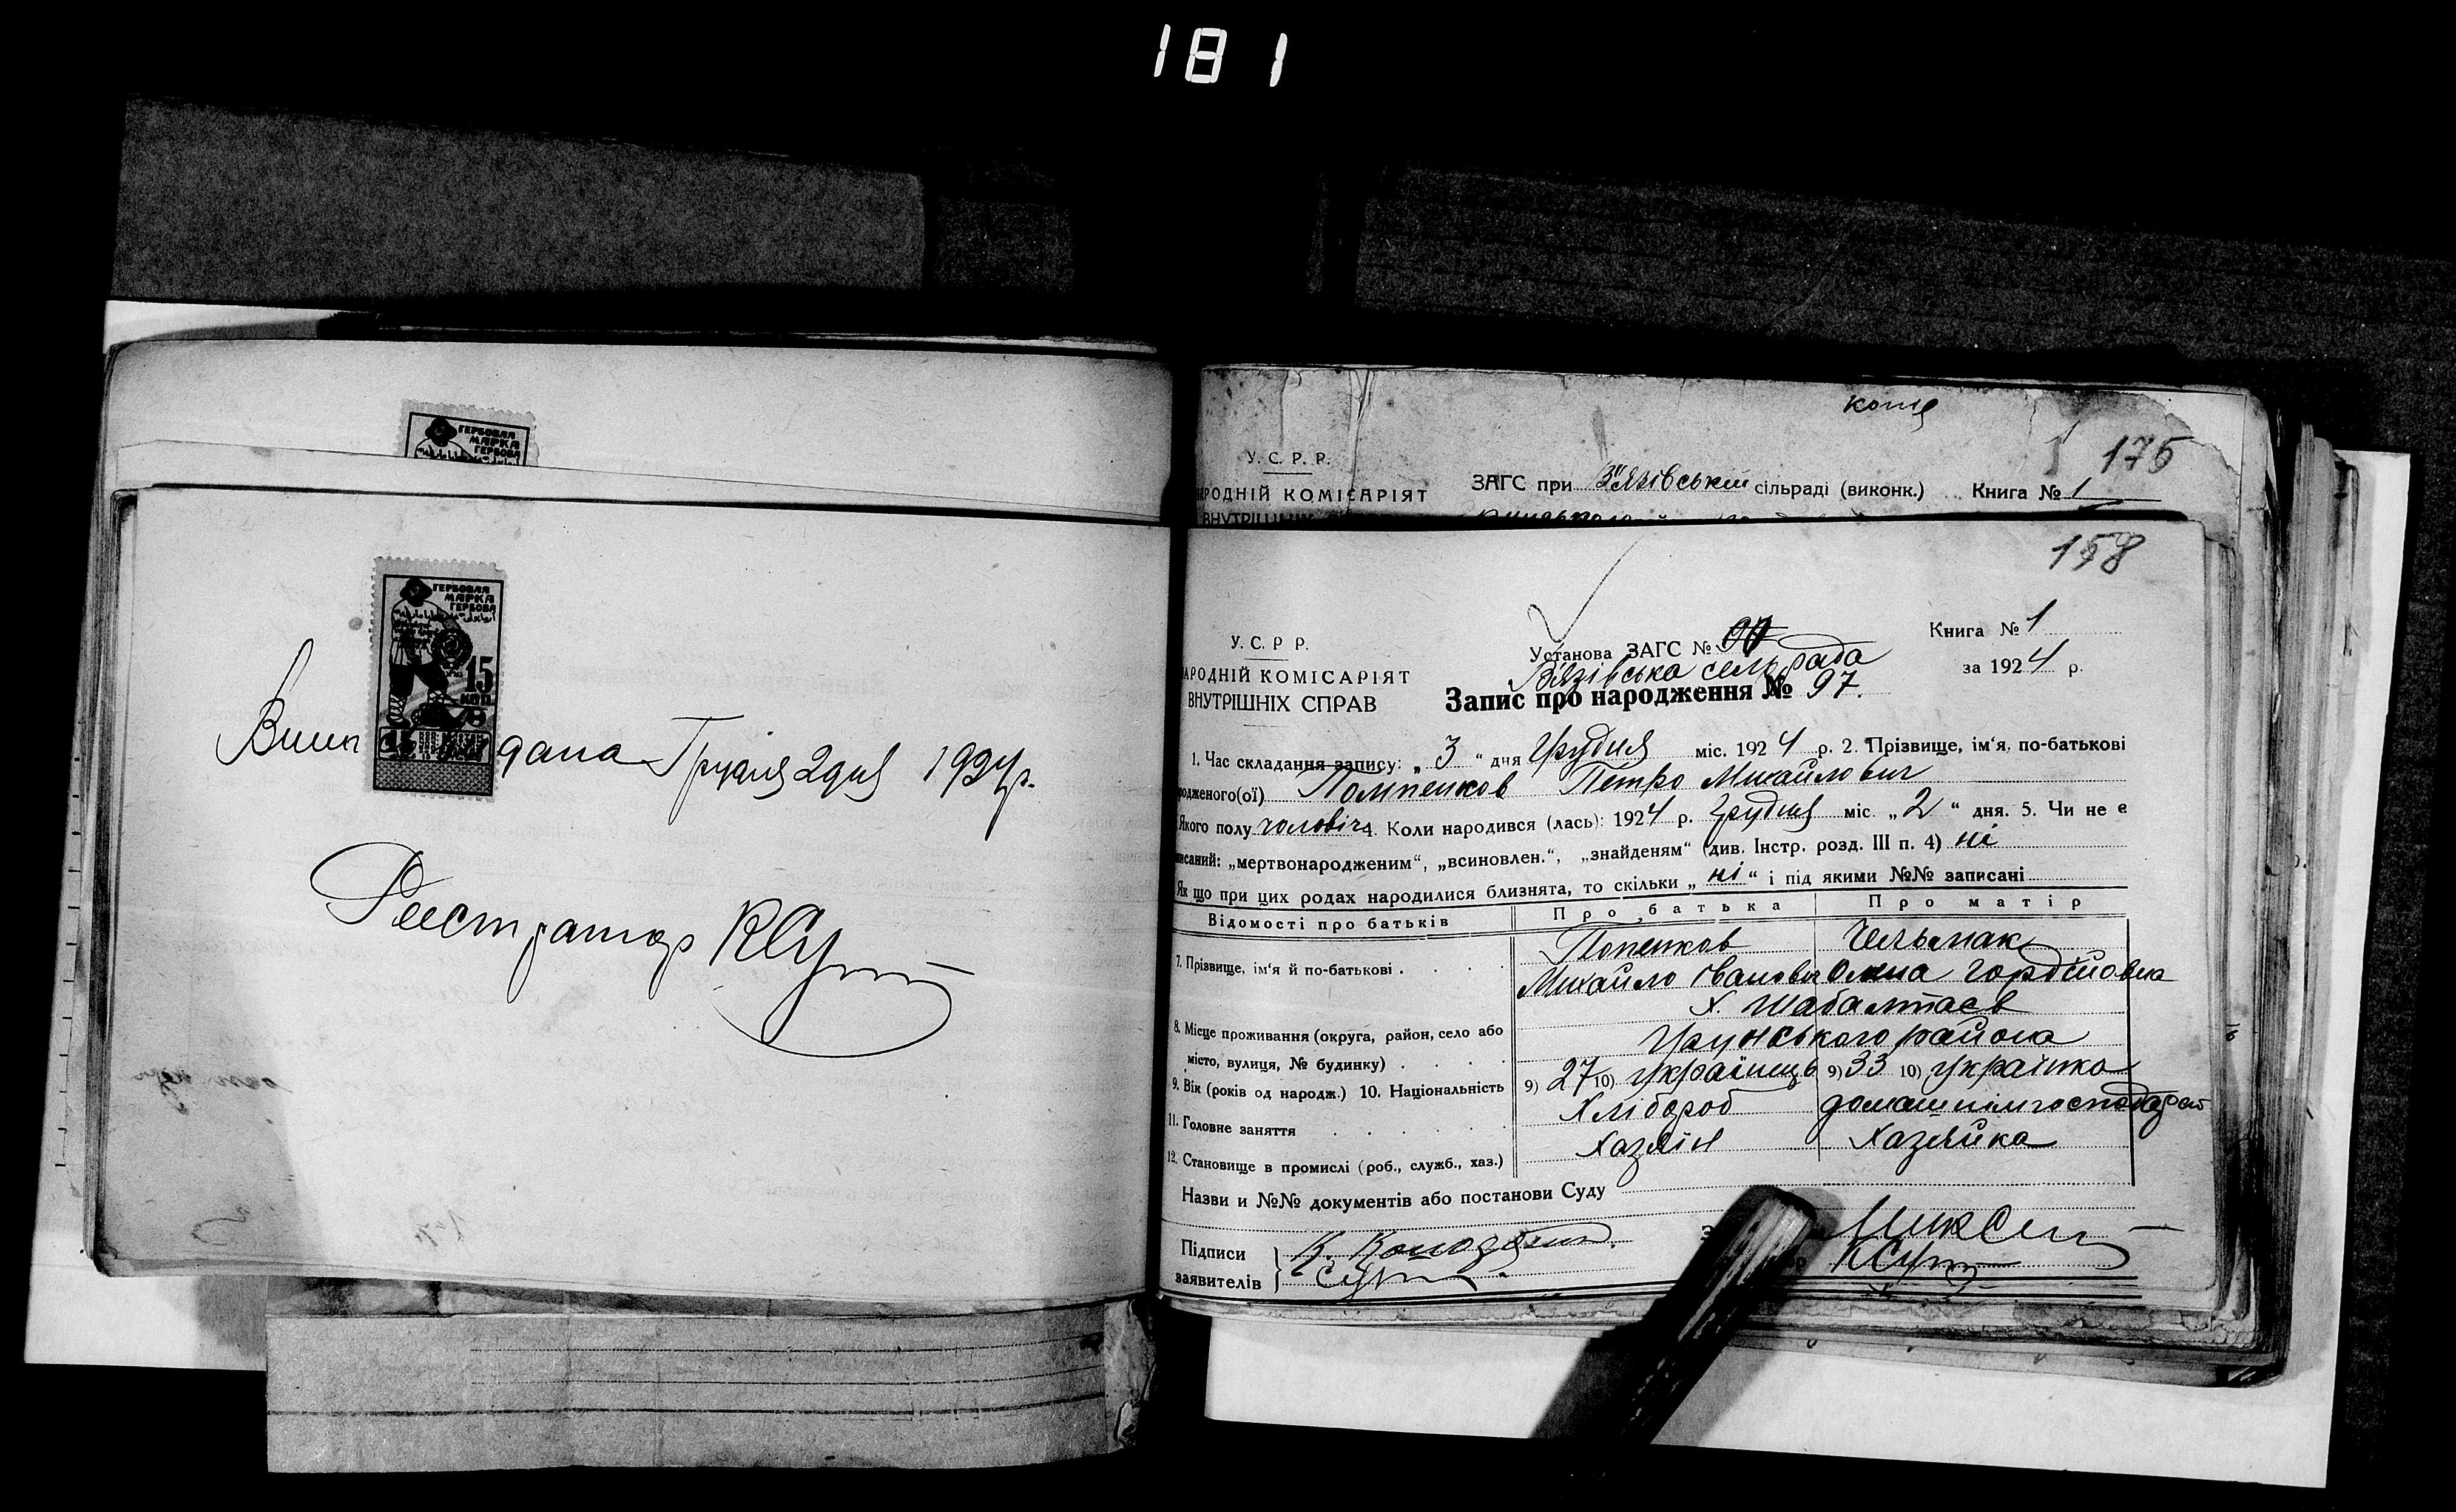 181
ГЕРБОВАЯ
МАРКА
ГЕРБОВА
ГЕРБОВАЯ
МАРКА
ГЕРБОВА
15
КОП
Грудня 2 дня 1924 р.
Реєстратор КСут
копія
175
У. С. Р. Р.
РОДНІЙ КОМІСАРІЯТ
ЗАГС при В'язівській сільраді (виконк.) Книга № 1
158
Книга № 1
У. С. Р Р.
Установа ЗАГС №
за 1924 р.
АРОДНІЙ КОМІСАРІЯТ
В'язівська сельрада
ВНУТРІШНІХ СПРАВ
Запис про народження № 97.
1. Час складання запису: „ 3 “ дня Грудня міс. 1924 р. 2. Прізвище, ім'я, по-батькові
родженого(ої) Петро Михайлович
Якого полу чоловіч 4. Коли народився (лась): 1924 р. Грудня міс. „ 2 “ дня. 5. Чи не є
писаний: „мертвонародженим“, „всиновлен.“, „знайденям“ (див. Інстр. розд. III п. 4) ні
Як що при цих родах народилися близнята, то скільки „ ні “ і під якими №№ записані
Відомості про батьків Про батька Про матір
7. Прізвище, ім'я й по-батькові Попенков
Михайло Іванович Олена Гордійовна
8. Місце проживання (округа, район, село або
місто, вулиця, № будинку)
х. Шабалтаєв
Грунського района
9. Вік (років од народж.) 10. Національність 9) 27 10) українець 9) 33 10) українка
11. Головне заняття Хлібороб
12. Становище в промислі (роб., служб., хаз.) Хазяїн Хазяйка
Назви и №№ документів або постанови Суду
Підписи
заявителів
КСут